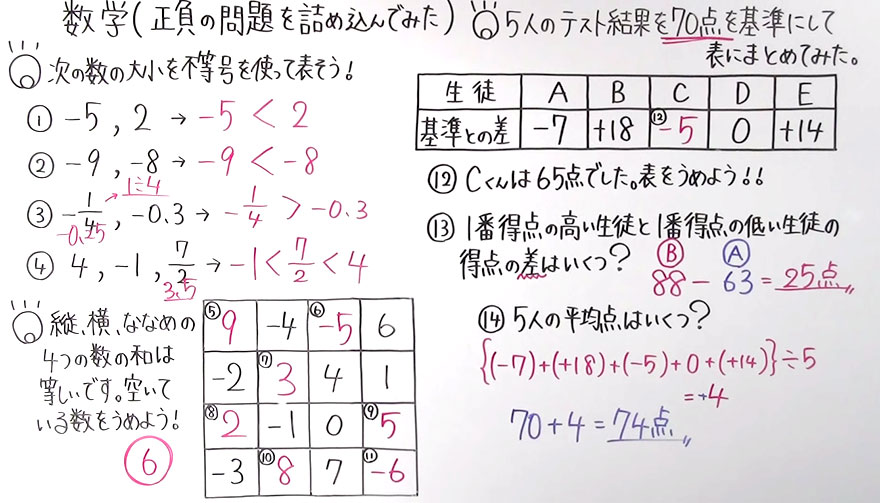 数学(正負の問題を詰め込んでみた)
次の数の大小を不等号を使って表そう!
① -5 , 2 → -5 < 2
② -9 , -8 → -9 < -8
1÷4
③ -1/4 , -0.3 → -1/4 > -0.3
-0.25
④ 4 , -1 , 7/2 → -1 < 7/2 < 4
3.5
縦、横、ななめの
4つの数の和は
等しいです。空いて
いる数をうめよう!
6
⑤ 9 -4 ⑥ -5 6
-2 ⑦ 3 4 1
⑧ 2 -1 0 ⑨ 5
-3 ⑩ 8 7 ⑪ -6
5人のテスト結果を70点を基準にして
表にまとめてみた。
生徒 A B C D E
基準との差 -7 +18 ⑫ -5 0 +14
⑫ Cくんは65点でした。表をうめよう!!
⑬ 1番得点の高い生徒と1番得点の低い生徒の
得点の差はいくつ?
B A
88 - 63 = 25点
⑭ 5人の平均点はいくつ?
{(-7)+(+18)+(-5)+0+(+14)}÷5
= +4
70+4=74点